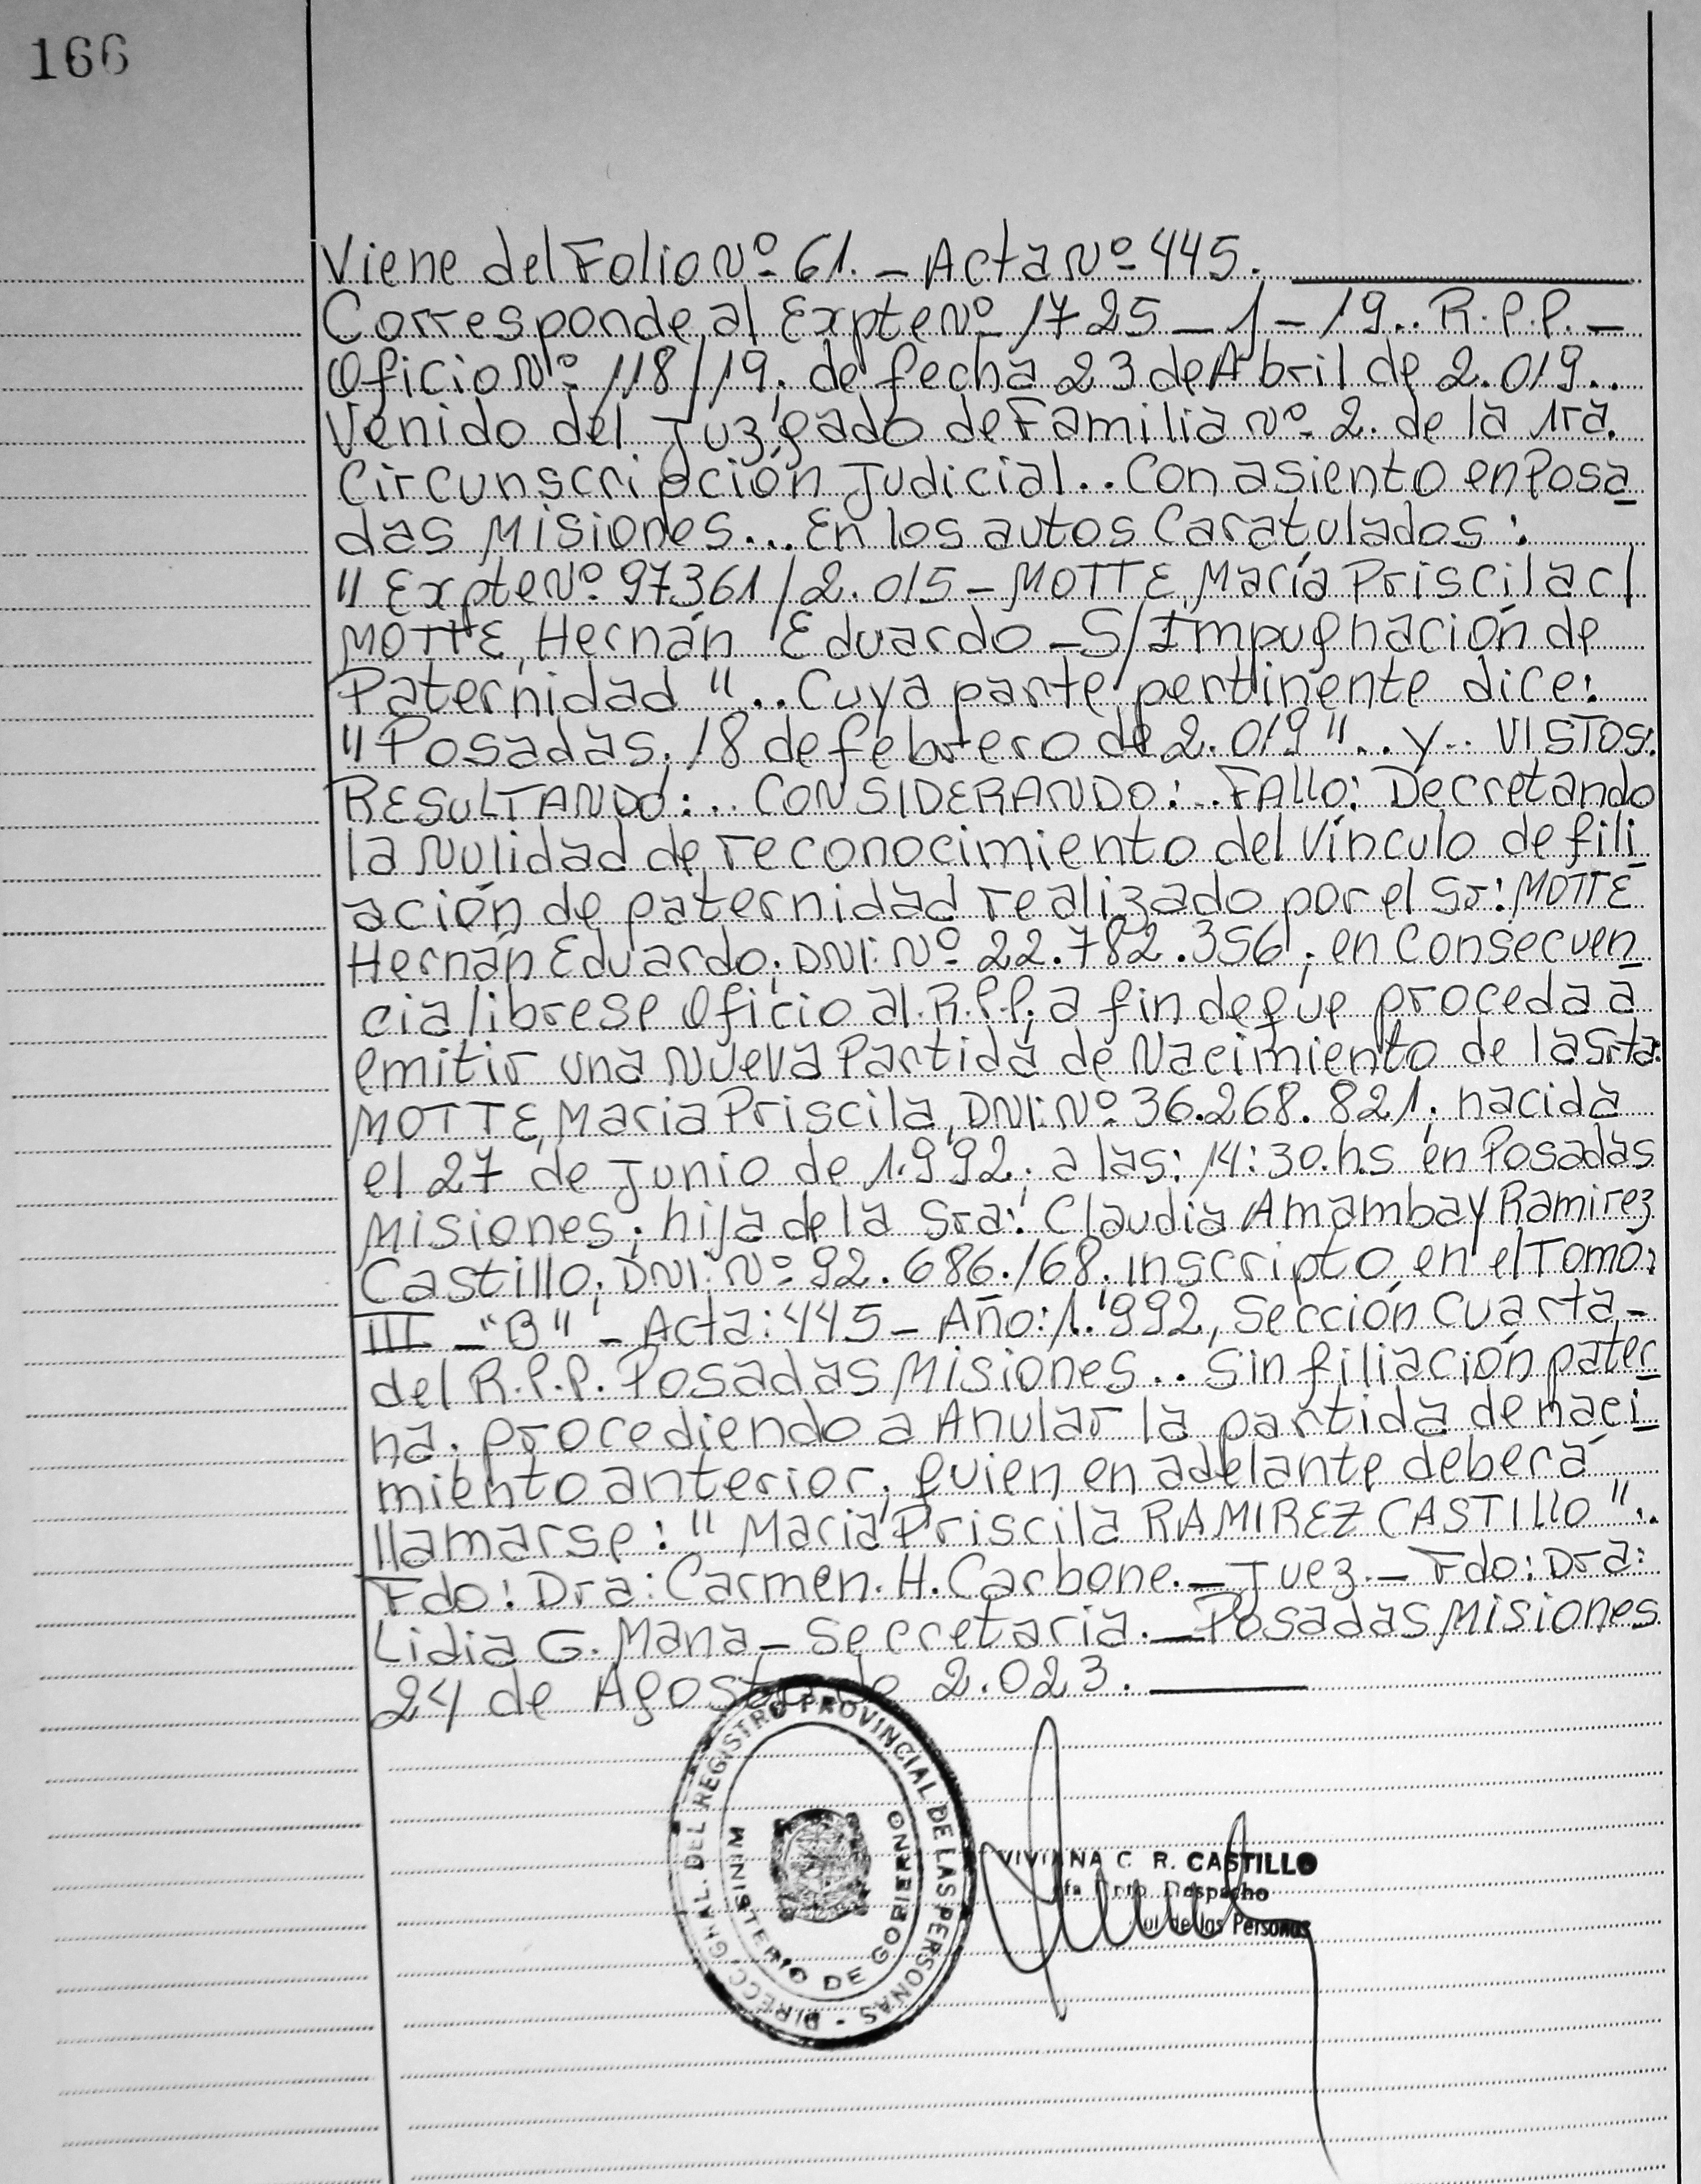 166
Viene del Folio Nº 61. - Acta Nº 445.
Corresponde, al Expte Nº 1725 - 1 - 19.. R.P.P. -
Oficio Nº 118/19, de fecha 23 de Abril de 2.019..
Venido del Juzgado de Familia Nº 2. de la 1ra.
Circunscripción Judicial.. Con asiento en Posa
das Misiones... En los autos Caratulados:
"Expte Nº 97361/2.015 - MOTTE, María Priscila c/
MOTTE, Hernán Eduardo - S/Impugnación de
Paternidad".. Cuya parte pertinente dice:
"Posadas, 18 de febrero de 2.019".. y.. VISTOS:
RESULTANDO:.. CONSIDERANDO:.. FALLO: Decretando
la Nulidad de reconocimiento del Vínculo de fili
ación de paternidad realizado por el Sr: MOTTE
Hernán Eduardo; DNI: Nº 22.782.356; en Consecuen
cia librese Oficio al R.P.P. a fin de que proceda a
emitir una Nueva Partida de Nacimiento de la Srta.
MOTTE, Maria Priscila, DNI: Nº 36.268.821; nacida
el 27 de Junio de 1.992; a las: 14:30.hs en Posadas
Misiones; hija de la Sra: Claudia Amambay Ramirez
Castillo; DNI: Nº 92.686.168; inscripto en el Tomo:
III - "B" - Acta: 445 - Año: 1.992, Sección Cuarta -
del R.P.P. Posadas Misiones.. Sin filiación pater
na; procediendo a Anular la partida de naci
miento anterior; quien en adelante deberá
llamarse: "Maria Priscila RAMIREZ CASTILLO"..
Fdo: Dra: Carmen. H. Carbone. - Juez - Fdo: Dra:
Lidia G. Mana - Secretaria. - Posadas Misiones
24 de Agosto de 2.023.
DIRECC. GRAL. DEL REGISTRO PROVINCIAL DE LAS PERSONAS -
MINISTERIO DE GOBIERNO
VIVIANA C. R. CASTILLO
Despacho
de las Personas